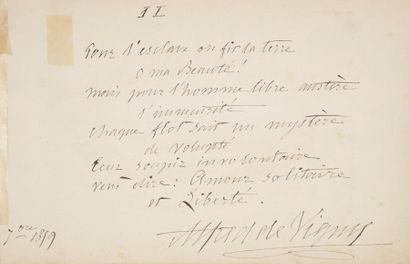 II
Pour l'esclave on fit la terre
O ma Beauté !
Mais pour l'homme libre austère
L'immensité
Chaque flot sait un mystère
de volupté
Leur soupir involontaire
veut dire : Amour solitaire
et Liberté.
7bre 1859
Alfred de Vigny